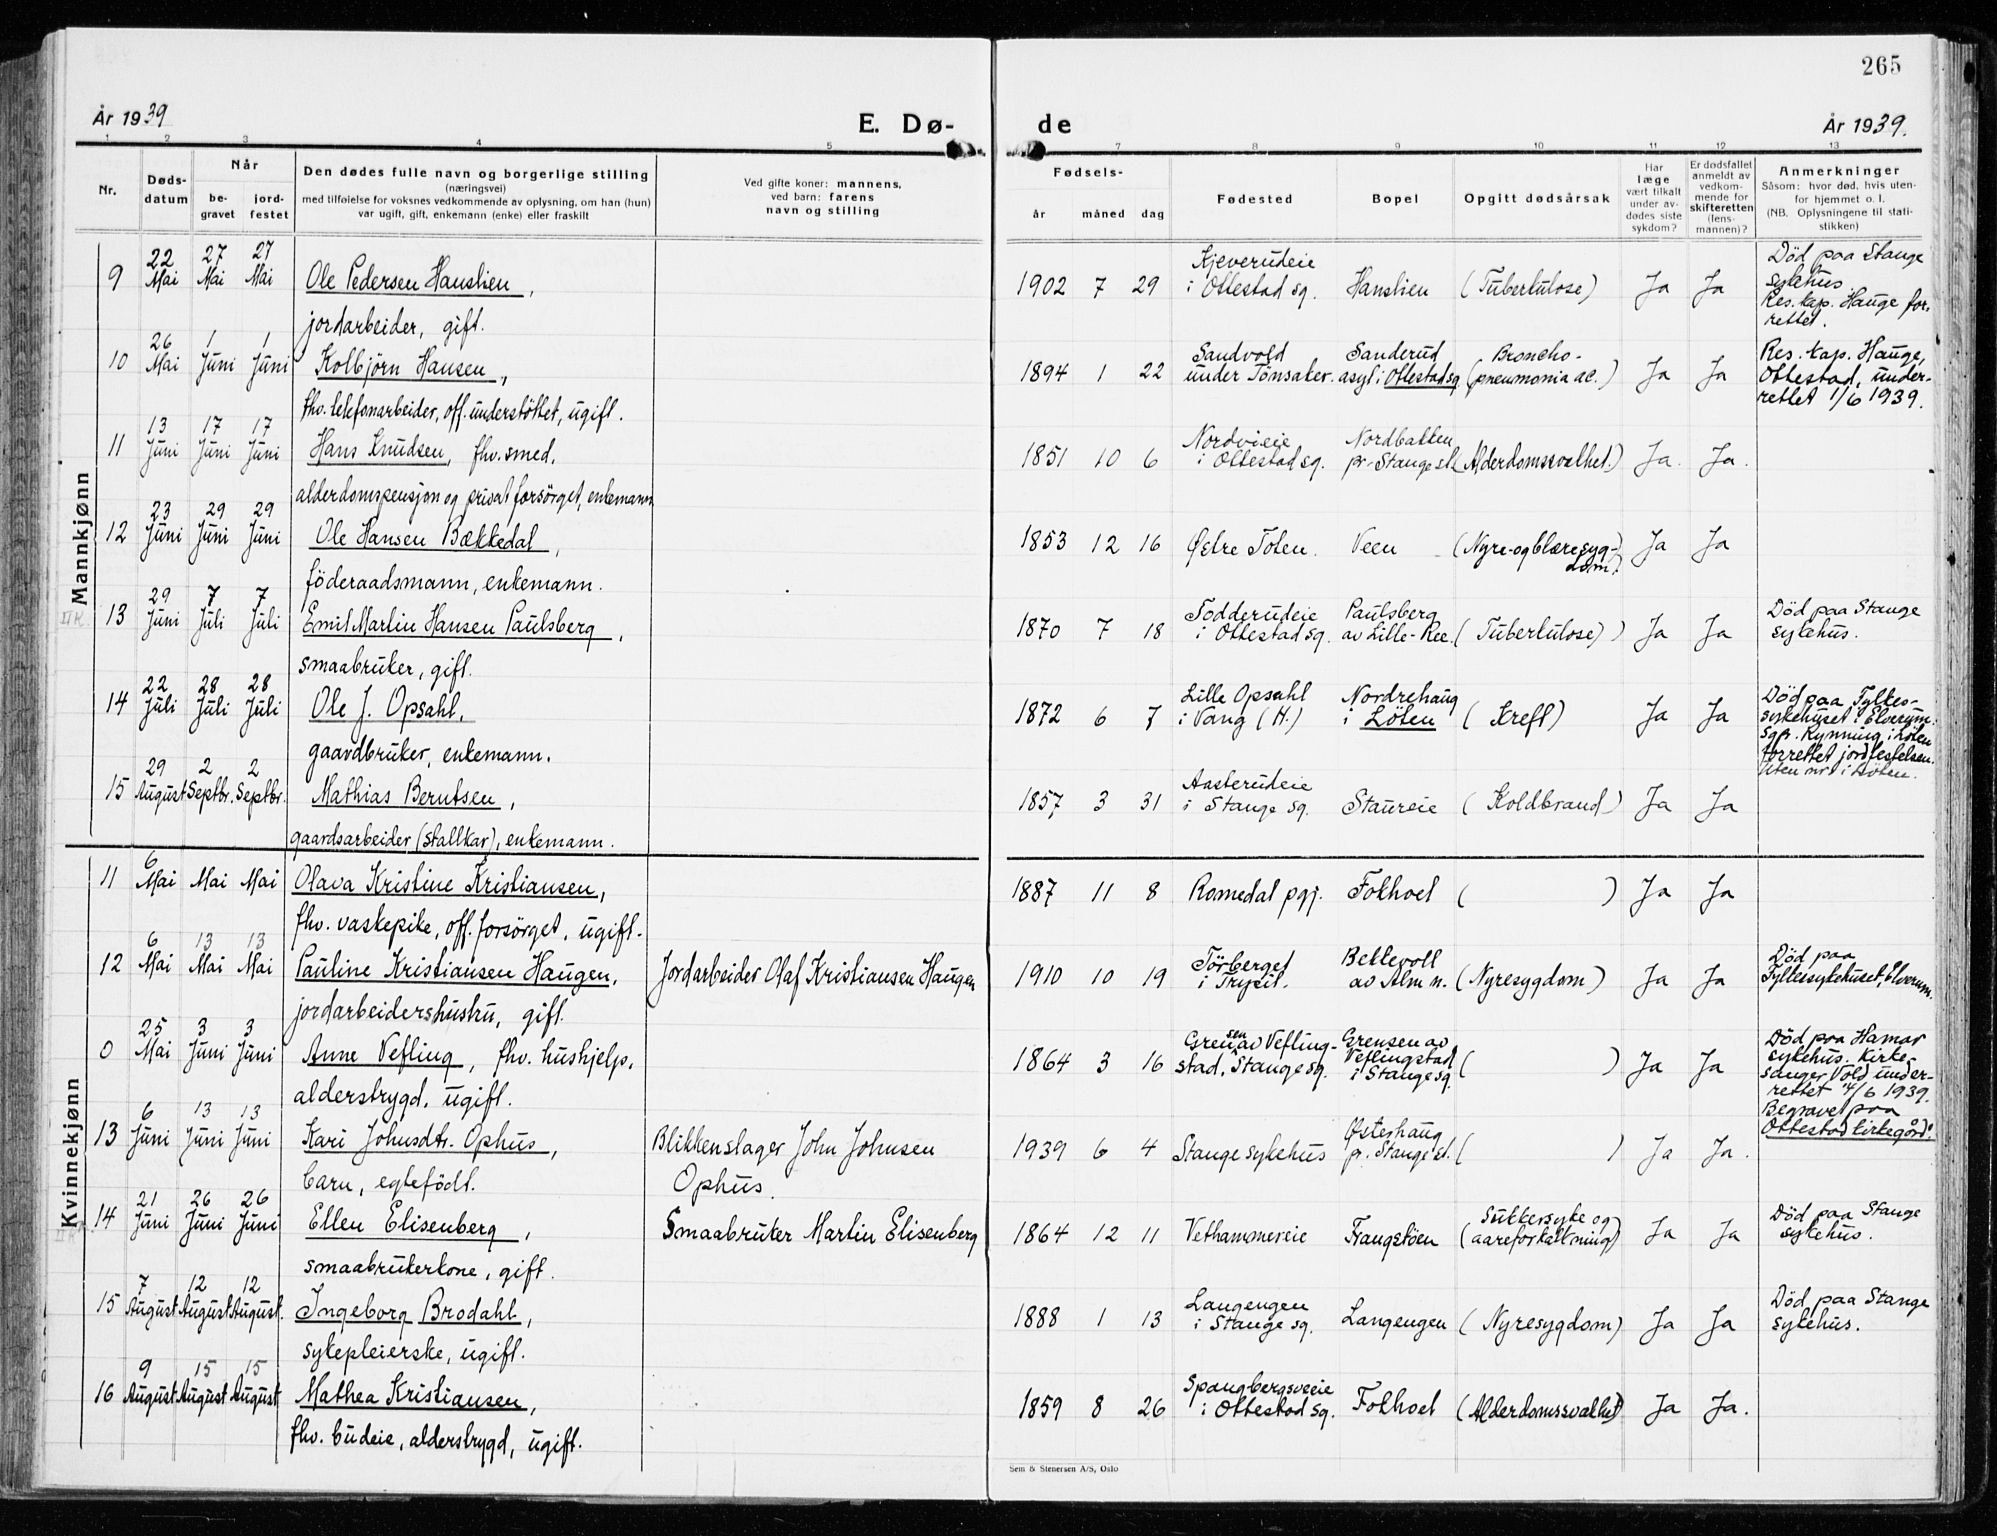 265
År 1939
E. Dø-
de
År 1939.
1 2 3 4 5 7 8 9 10 11 12 13
Nr.
Døds-
datum
Når
be-
gravet
jord-
festet
Den dødes fulle navn og borgerlige stilling
(næringsvei)
med tilføielse for voksnes vedkommende av oplysning, om han (hun)
var ugift, gift, enkemann (enke) eller fraskilt
Ved gifte koner: mannens,
ved barn: farens
navn og stilling
Fødsels-
år måned dag
Fødested
Bopel
Opgitt dødsårsak
Har
læge
vært tilkalt
under av-
dødes siste
sykdom?
Er dødsfallet
anmeldt av
vedkom-
mende for
skifteretten
(lens-
mannen)?
Anmerkninger
Såsom: hvor død, hvis uten-
for hjemmet o. l.
(NB. Oplysningene til stati-
stikken)
Mannkjønn
9 22 Mai 27 Mai 27 Mai Ole Pedersen Hanslien,
jordarbeider, gift.
1902 7 29 Kjeverudeie
i Ottestad sg. Hanslien (Tuberkulose) Ja Ja
Død paa Stange
sykehus.
Res. kap. Hauge for-
rettet.
10 26 Mai 1 Juni 1 Juni Kolbjörn Hansen,
fhv. telefonarbeider, off. understöttet, ugift.
1894 1 22 Sandvold
under Tönsaker. Sanderud
asyl i Ottestad sg. Broncho-
(pneumonia ac.) Ja Ja
Res. kap. Hauge,
Ottestad, under-
rettet 1/6 1939.
11 13 Juni 17 Juni 17 Juni Hans Knudsen, fhv. smed,
alderdomspensjon og privat forsörget, enkemann
1851 10 6 Nordvieie
i Ottestad sg. Nordbakken
pr. Stange st. (Alderdomssvakhet.) Ja. Ja.
12 23 Juni 29 Juni 29 Juni Ole Hansen Bækkedal,
föderaadsmann, enkemann.
1853 12 16 Østre Toten. Veen (Nyre- og blæresyg-
dom.) Ja Ja
13 29 Juni 7 Juli 7 Juli Emil Martin Hansen Paulsberg,
smaabruker, gift.
1870 7 18 Todderudeie
i Ottestad sg. Paulsberg
av Lille-Ree. (Tuberkulose) Ja Ja
Død paa Stange
sykehus.
14 22 Juli 28 Juli 28 Juli Ole J. Opsahl,
gaardbruker, enkemann.
1872 6 7 Lille Opsahl
i Vang (H.) Nordrehaug
i Löten (Kreft) Ja Ja
Død paa Fylkes-
sykehuset i Elverum.
Sgpr. Rynning i Löten
forrettet jordfestelsen.
Uten nr. i Löten.
15 29 August 2 Septbr. 2 Septbr. Mathias Berntsen,
gaardsarbeider (stallkar), enkemann.
1857 3 31 Aasterudeie
i Stange sg. Staureie (Koldbrand) Ja Ja
Kvinnekjønn
11 6 Mai Mai Mai Olava Kristine Kristiansen,
fhv. vaskepike, off. forsörget, ugift.
1887 11 8 Romedal pgj. Fokhoel ( ) Ja Ja
12 6 Mai 13 Mai 13 Mai Pauline Kristiansen Haugen,
jordarbeidershustru, gift.
Jordarbeider Olaf Kristiansen Haugen
1910 10 19 Törberget
i Trysil. Bekkevoll
av Alm n. (Nyresygdom) Ja Ja
Død paa
Fylkessykehuset, Elverum.
0 25 Mai 3 Juni 3 Juni Anne Vefling, fhv. hushjelp,
alderstrygd, ugift.
1864 3 16 Grensen av Vefling-
stad, Stange sg. Grensen av
Veflingstad
i Stange sg. ( ) Ja Ja
Død paa Hamar
sykehus. Kirke-
sanger Vold under-
rettet 4/6 1939.
Begravet paa
Ottestad kirkegård.
13 6 Juni 13 Juni 13 Juni Kari Johnsdtr. Ophus,
barn, egtefödt.
Blikkenslager John Johnsen
Ophus.
1939 6 4 Stange sykehus Østerhaug
pr. Stange st. ( ) Ja Ja.
14 21 Juni 26 Juni 26 Juni Ellen Elisenberg,
smaabrukerkone, gift.
Smaabruker Martin Elisenberg
1864 12 11 Vethammereie Frangstöen Sukkersyke og
(aareforkalkning) Ja Ja
Død paa Stange
sykehus.
15 7 August 12 August 12 August. Ingeborg Brodahl,
sykepleierske, ugift.
1888 1 13 Langengen
i Stange sg. Langengen (Nyresygdom) Ja Ja
Død paa Stange
sykehus.
16 9 August 15 August 15 August Mathea Kristiansen,
fhv. budeie, alderstrygd, ugift.
1859 8 26 Spangbergsveeie
i Ottestad sg. Fokhoel (Alderdomssvakhet) Ja Ja.
Sem & Stenersen A/S, Oslo